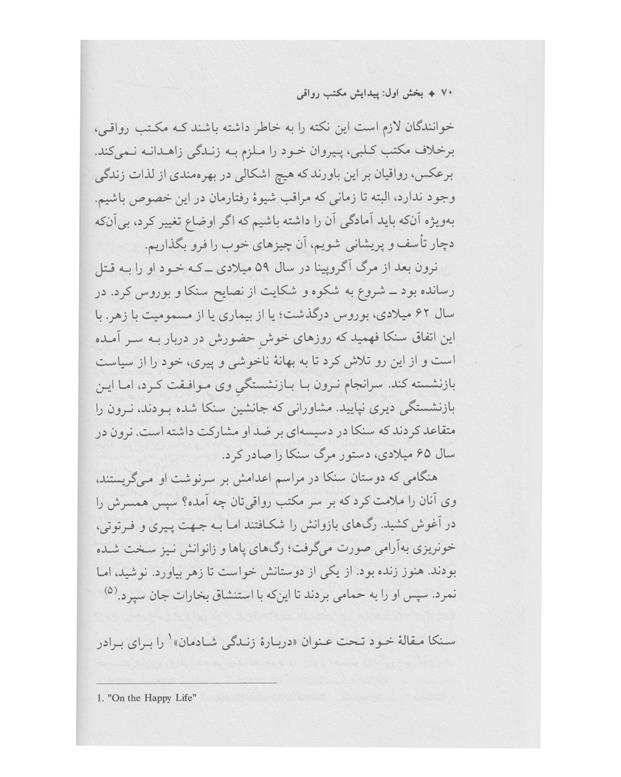 ۷۰ ✦ بخش اول: پیدایش مکتب رواقی
خوانندگان لازم است این نکته را به خاطر داشته باشند که مکتب رواقی،
برخلاف مکتب کلبی، پیروان خود را ملزم به زندگی زاهدانه نمی‌کند.
برعکس، رواقیان بر این باورند که هیچ اشکالی در بهره‌مندی از لذات زندگی
وجود ندارد، البته تا زمانی که مراقب شیوهٔ رفتارمان در این خصوص باشیم.
به‌ویژه آن‌که باید آمادگی آن را داشته باشیم که اگر اوضاع تغییر کرد، بی‌آن‌که
دچار تأسف و پریشانی شویم، آن چیزهای خوب را فرو بگذاریم.
نرون بعد از مرگ آگروپینا در سال ۵۹ میلادی ــ که خود او را به قتل
رسانده بود ــ شروع به شکوه و شکایت از نصایح سنکا و بوروس کرد. در
سال ۶۲ میلادی، بوروس درگذشت؛ یا از بیماری یا از مسمومیت با زهر. با
این اتفاق سنکا فهمید که روزهای خوشِ حضورش در دربار به سر آمده
است و از این رو تلاش کرد تا به بهانهٔ ناخوشی و پیری، خود را از سیاست
بازنشسته کند. سرانجام نرون با بازنشستگیِ وی موافقت کرد، اما این
بازنشستگی دیری نپایید. مشاورانی که جانشین سنکا شده بودند، نرون را
متقاعد کردند که سنکا در دسیسه‌ای بر ضد او مشارکت داشته است. نرون در
سال ۶۵ میلادی، دستور مرگ سنکا را صادر کرد.
هنگامی که دوستان سنکا در مراسم اعدامش بر سرنوشت او می‌گریستند،
وی آنان را ملامت کرد که بر سر مکتب رواقی‌تان چه آمده؟ سپس همسرش را
در آغوش کشید. رگ‌های بازوانش را شکافتند اما به جهت پیری و فرتوتی،
خونریزی به‌آرامی صورت می‌گرفت؛ رگ‌های پاها و زانوانش نیز سخت شده
بودند. هنوز زنده بود. از یکی از دوستانش خواست تا زهر بیاورد. نوشید، اما
نمرد. سپس او را به حمامی بردند تا این‌که با استنشاق بخارات جان سپرد.(۵)
سنکا مقالهٔ خود تحت عنوان «دربارهٔ زندگی شادمان»۱ را برای برادر
1. "On the Happy Life"